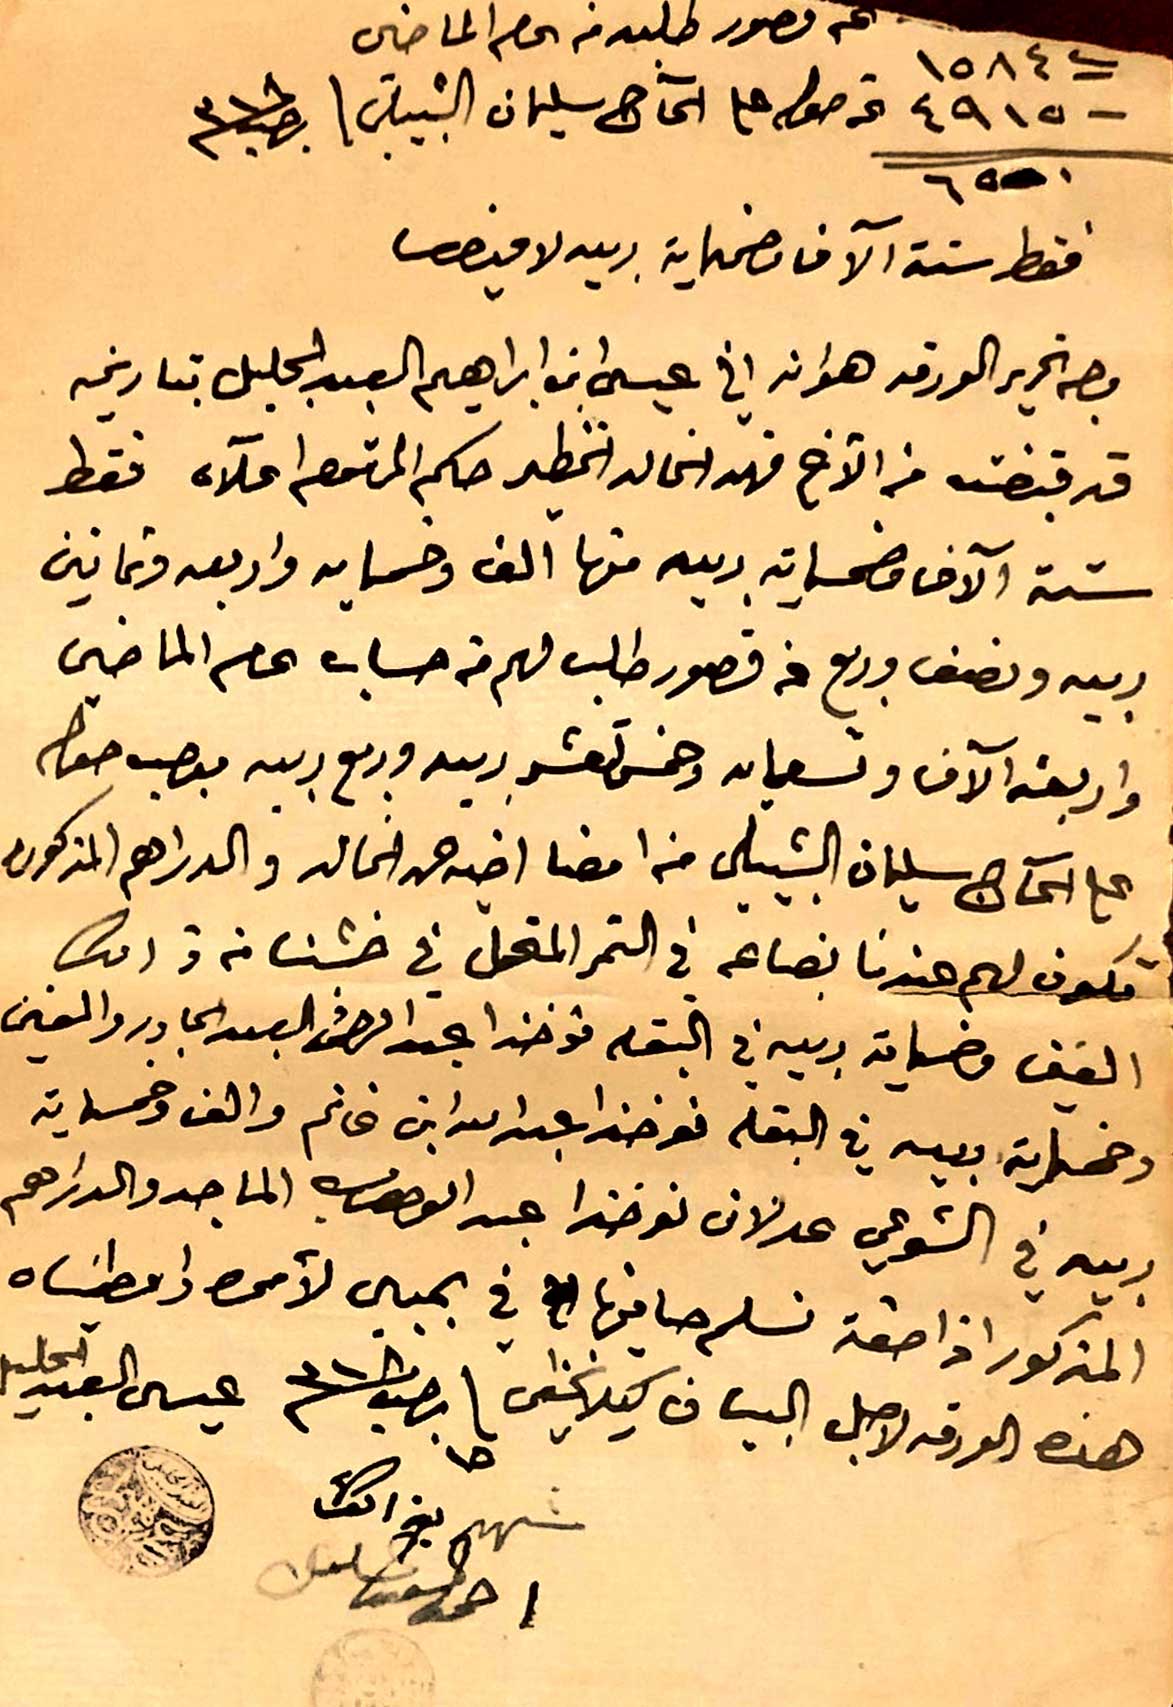 عن قصور طلبه من عام الماضي
١٥٨٤
٤٩١٥ عن حواله على الحاج سليمان الشبيلي
٦٥٠٠
فقط ستة آلاف وخمسماية ربيه لا غيرها
وجه تحرير الورقه هو انه اني عيسى ابن ابراهيم العبد الجليل بتاريخه
قد قبضت من الأخ فهد الخالد الخضير حكم المرقوم اعلاه فقط
ستة آلاف وخمسماية ربيه منها الف وخمسمايه واربعه وثمانين
ربيه ونصف وربع عن قصور طلب لهم من حساب عام الماضي
واربعة الآف وتسعمايه وخمسة عشر ربيه وربع ربيه بوجب حواله
على الحاج سليمان الشبيلي من امضا اخيه الخالد والدراهم المذكوره
تكون لهم عندنا بضاعه في التمر المحمل في خشبنا من ذالك
الفين وخمسماية ربيه في البقله نوخذا عبد الرحمن العبد الجادر والفين
وخمسماية ربيه في البقله نوخذا عبد الله ابن غانم والف وخمسماية
ربيه في الشوعي عدلان نوخذا عبد الوهاب الماجد والدراهم
المذكور اذا نسلم صافيها في بمبي لأمره واعطيناه
هذه الورقه لاجل البيان كيلا يخفى عيسى العبد الجليل
شهد بذالك
احمد